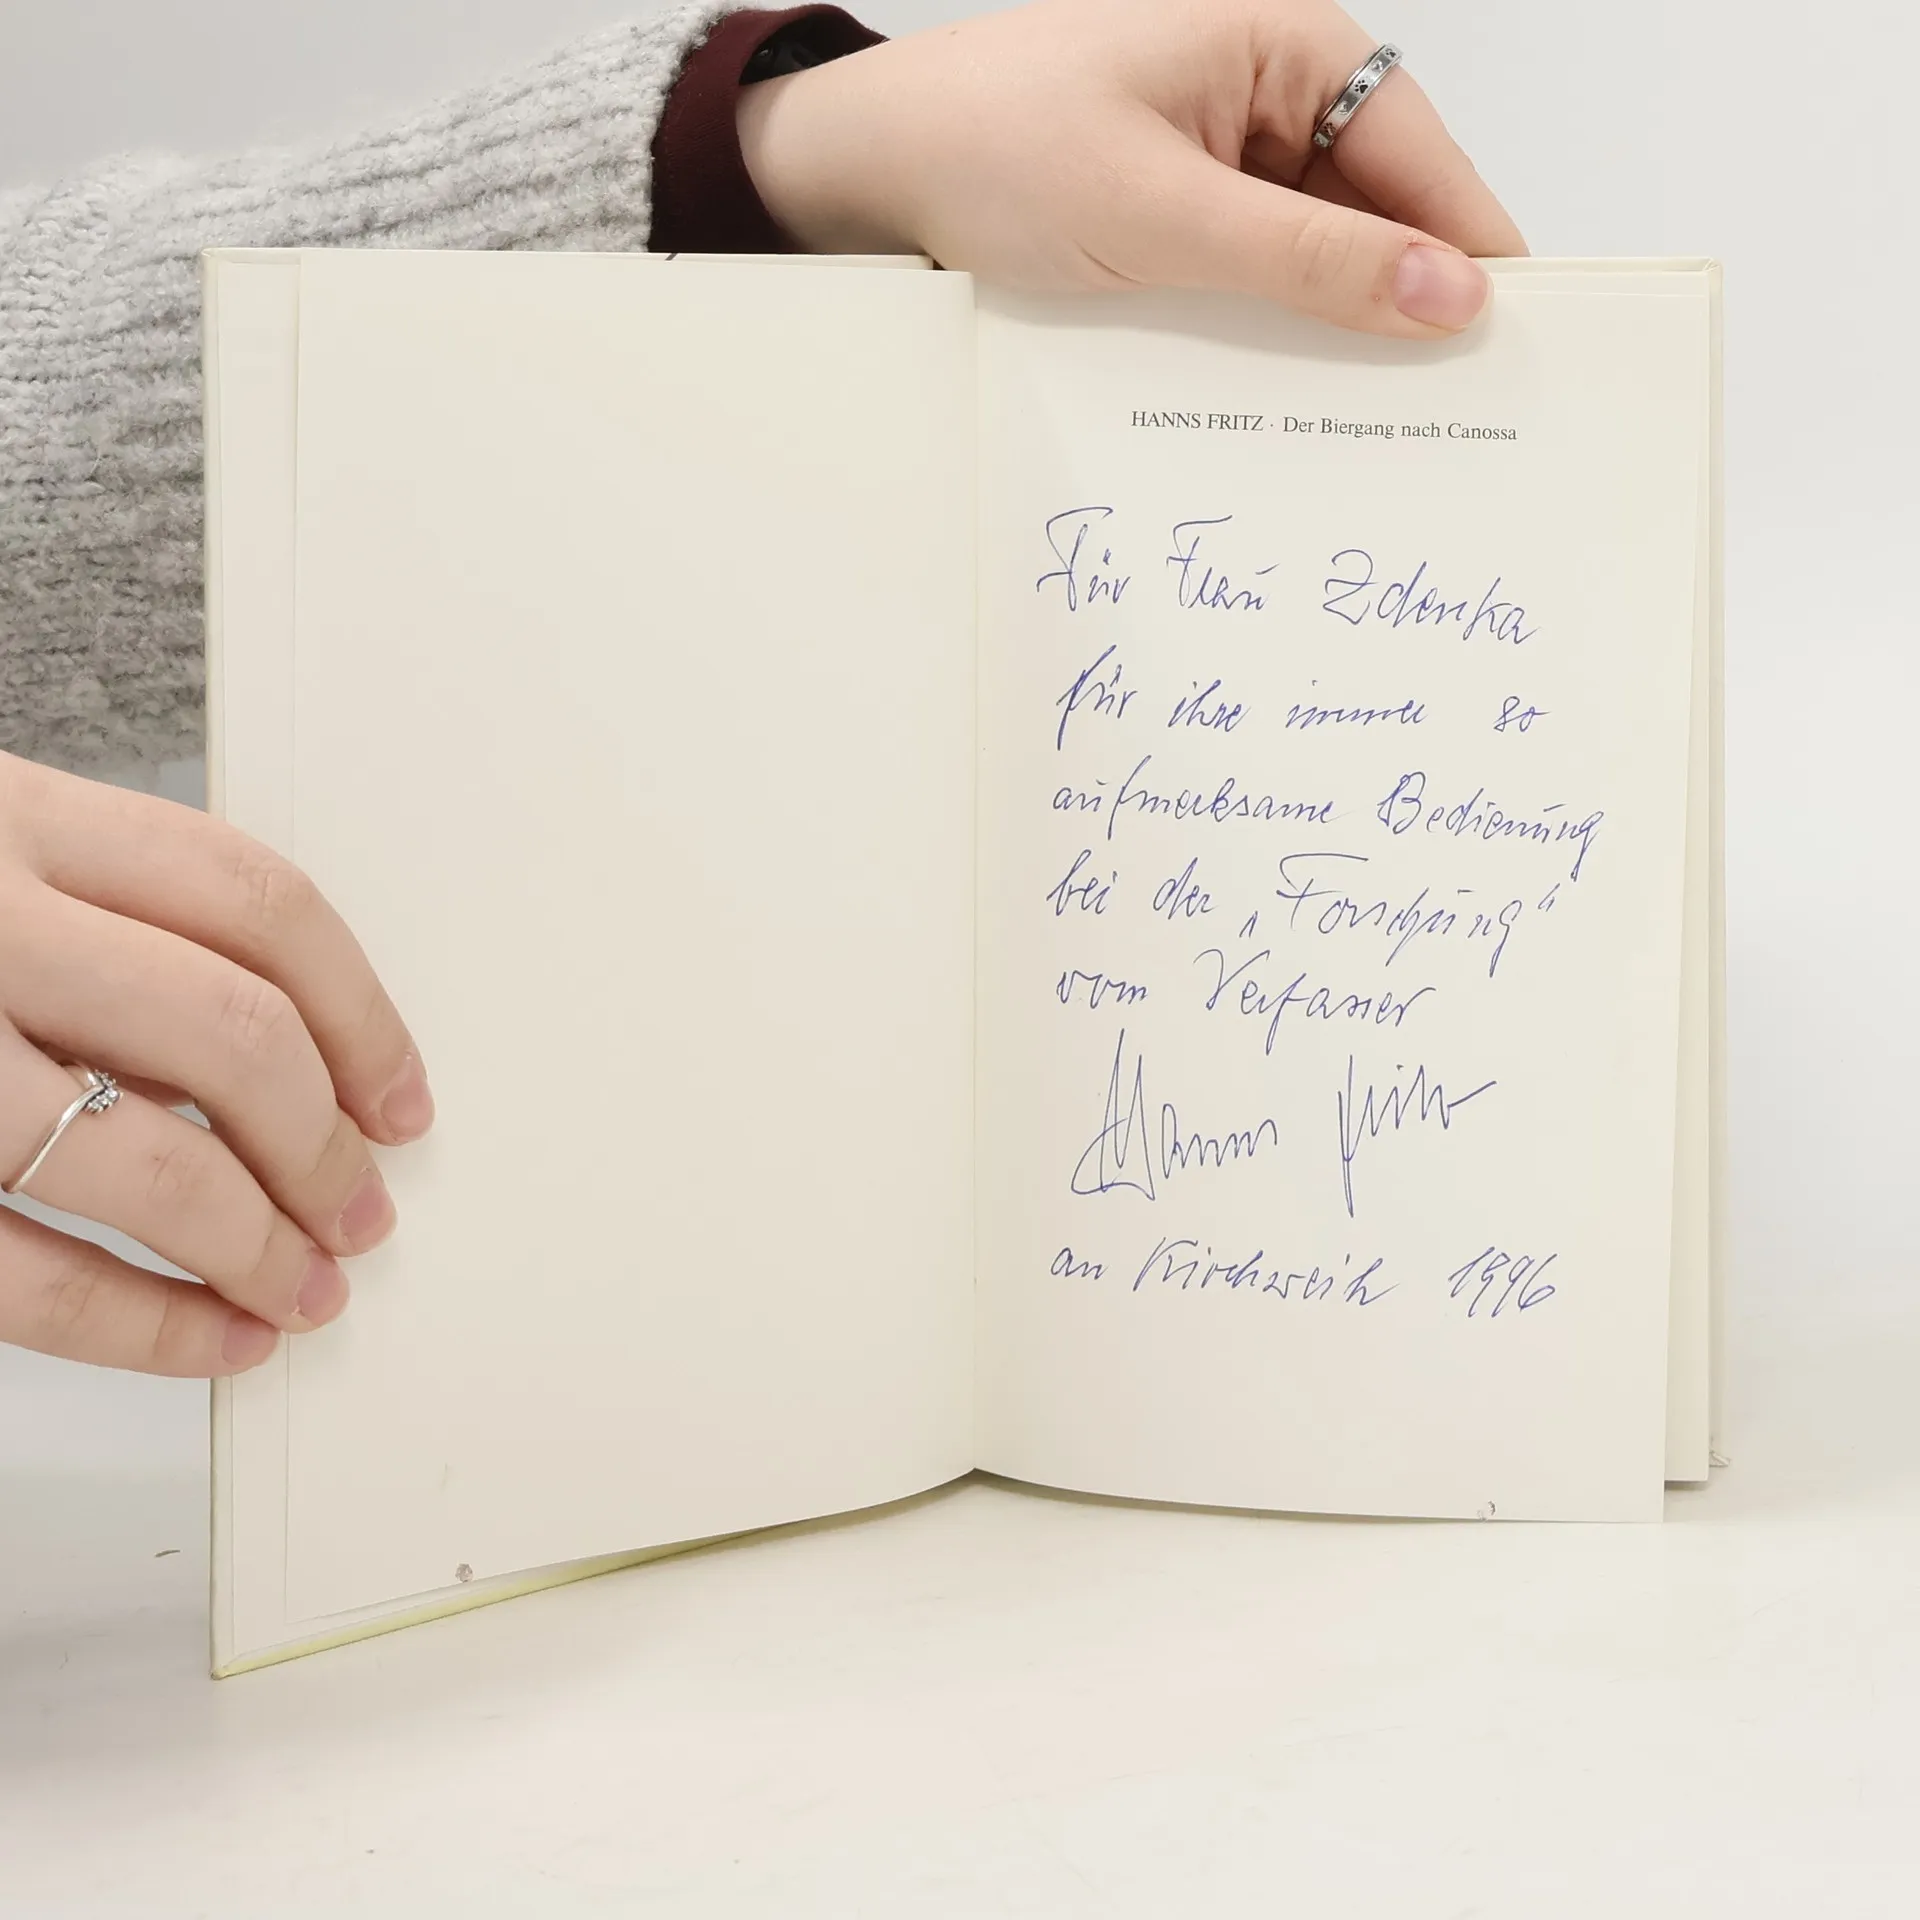 HANNS FRITZ · Der Biergang nach Canossa
Für Frau Zdenka
für ihre immer so
aufmerksame Bedienung
bei der „Forschung“
vom Verfasser
Hanns Fritz
an Kirchweih 1996